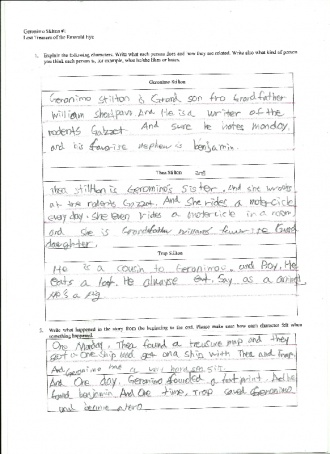 Geronimo Stilton #1
Lost Treasure of the Emerald Eye
1. Explain the following characters. Write what each person does and how they are related. Write also what kind of person
you think each person is, for example, what he/she likes or hates.
Geronimo Stilton
Geronimo stilton is Grand son fro Grandfather
William shortpaws And He is a writer of the
rodents Gazzet. And sure he hates monday.
and his favorise nephew is benjamin.
Thea Stilton
Thea stillton is Geromino's Sister. And she works
at the rodents Gazzet. And She rides a motercicle
every day. She Even rides a motercicle in a room
and she is Grandfather williams' Grand
daughter.
Trap Stilton
He is a cousin to Geronimo. and He
eats a He always eat. Say as a
He's a
2. Write what happened in the story from the beginning to the end. Please make sure how each character felt when
something happened.
One Monday, Thea found a treasure map and they
got on a ship with Thea and Trap.
And Geronimo
And One day, Geronimo founded a footprint. And he
found benjamin And One time, Trap saved Geronimo
and became a hero